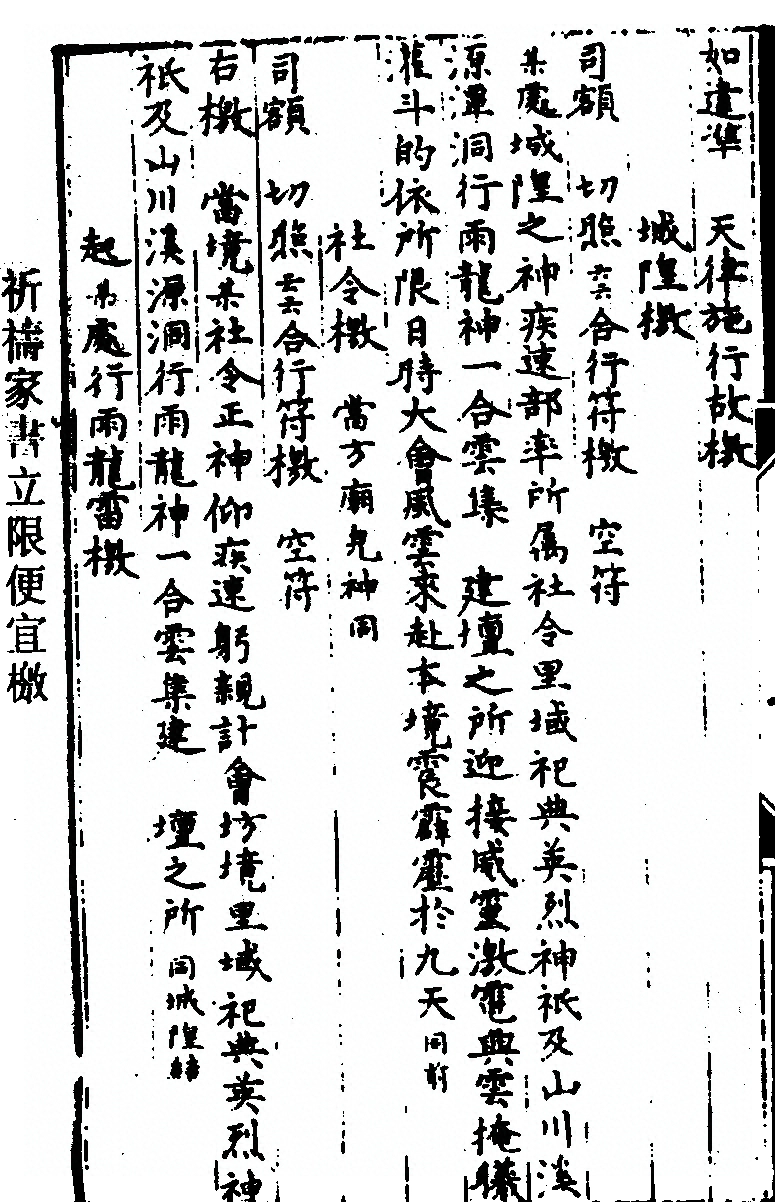 如違準　天律施行故檄
城隍檄
司額　切照云云合行符檄　空符
某處城隍之神疾速部率所属社令里域祀典英烈神祇及山川溪
源潭洞行雨龍神一合雲集　建壇之所迎接威靈激電興雲掩曦
灌斗的依所限日時大會風雲來赴本境震霹靂於九天同前
社令檄　當方廟皃神同
司額　切照云云合行符檄　空符
右檄　當境某社令正神仰疾速躬親計會坊境里域祀典英烈神
祇及山川溪源洞行雨龍神一合雲集建　壇之所同城隍
起某處行雨龍雷檄
祈禱家書立限便宜檄